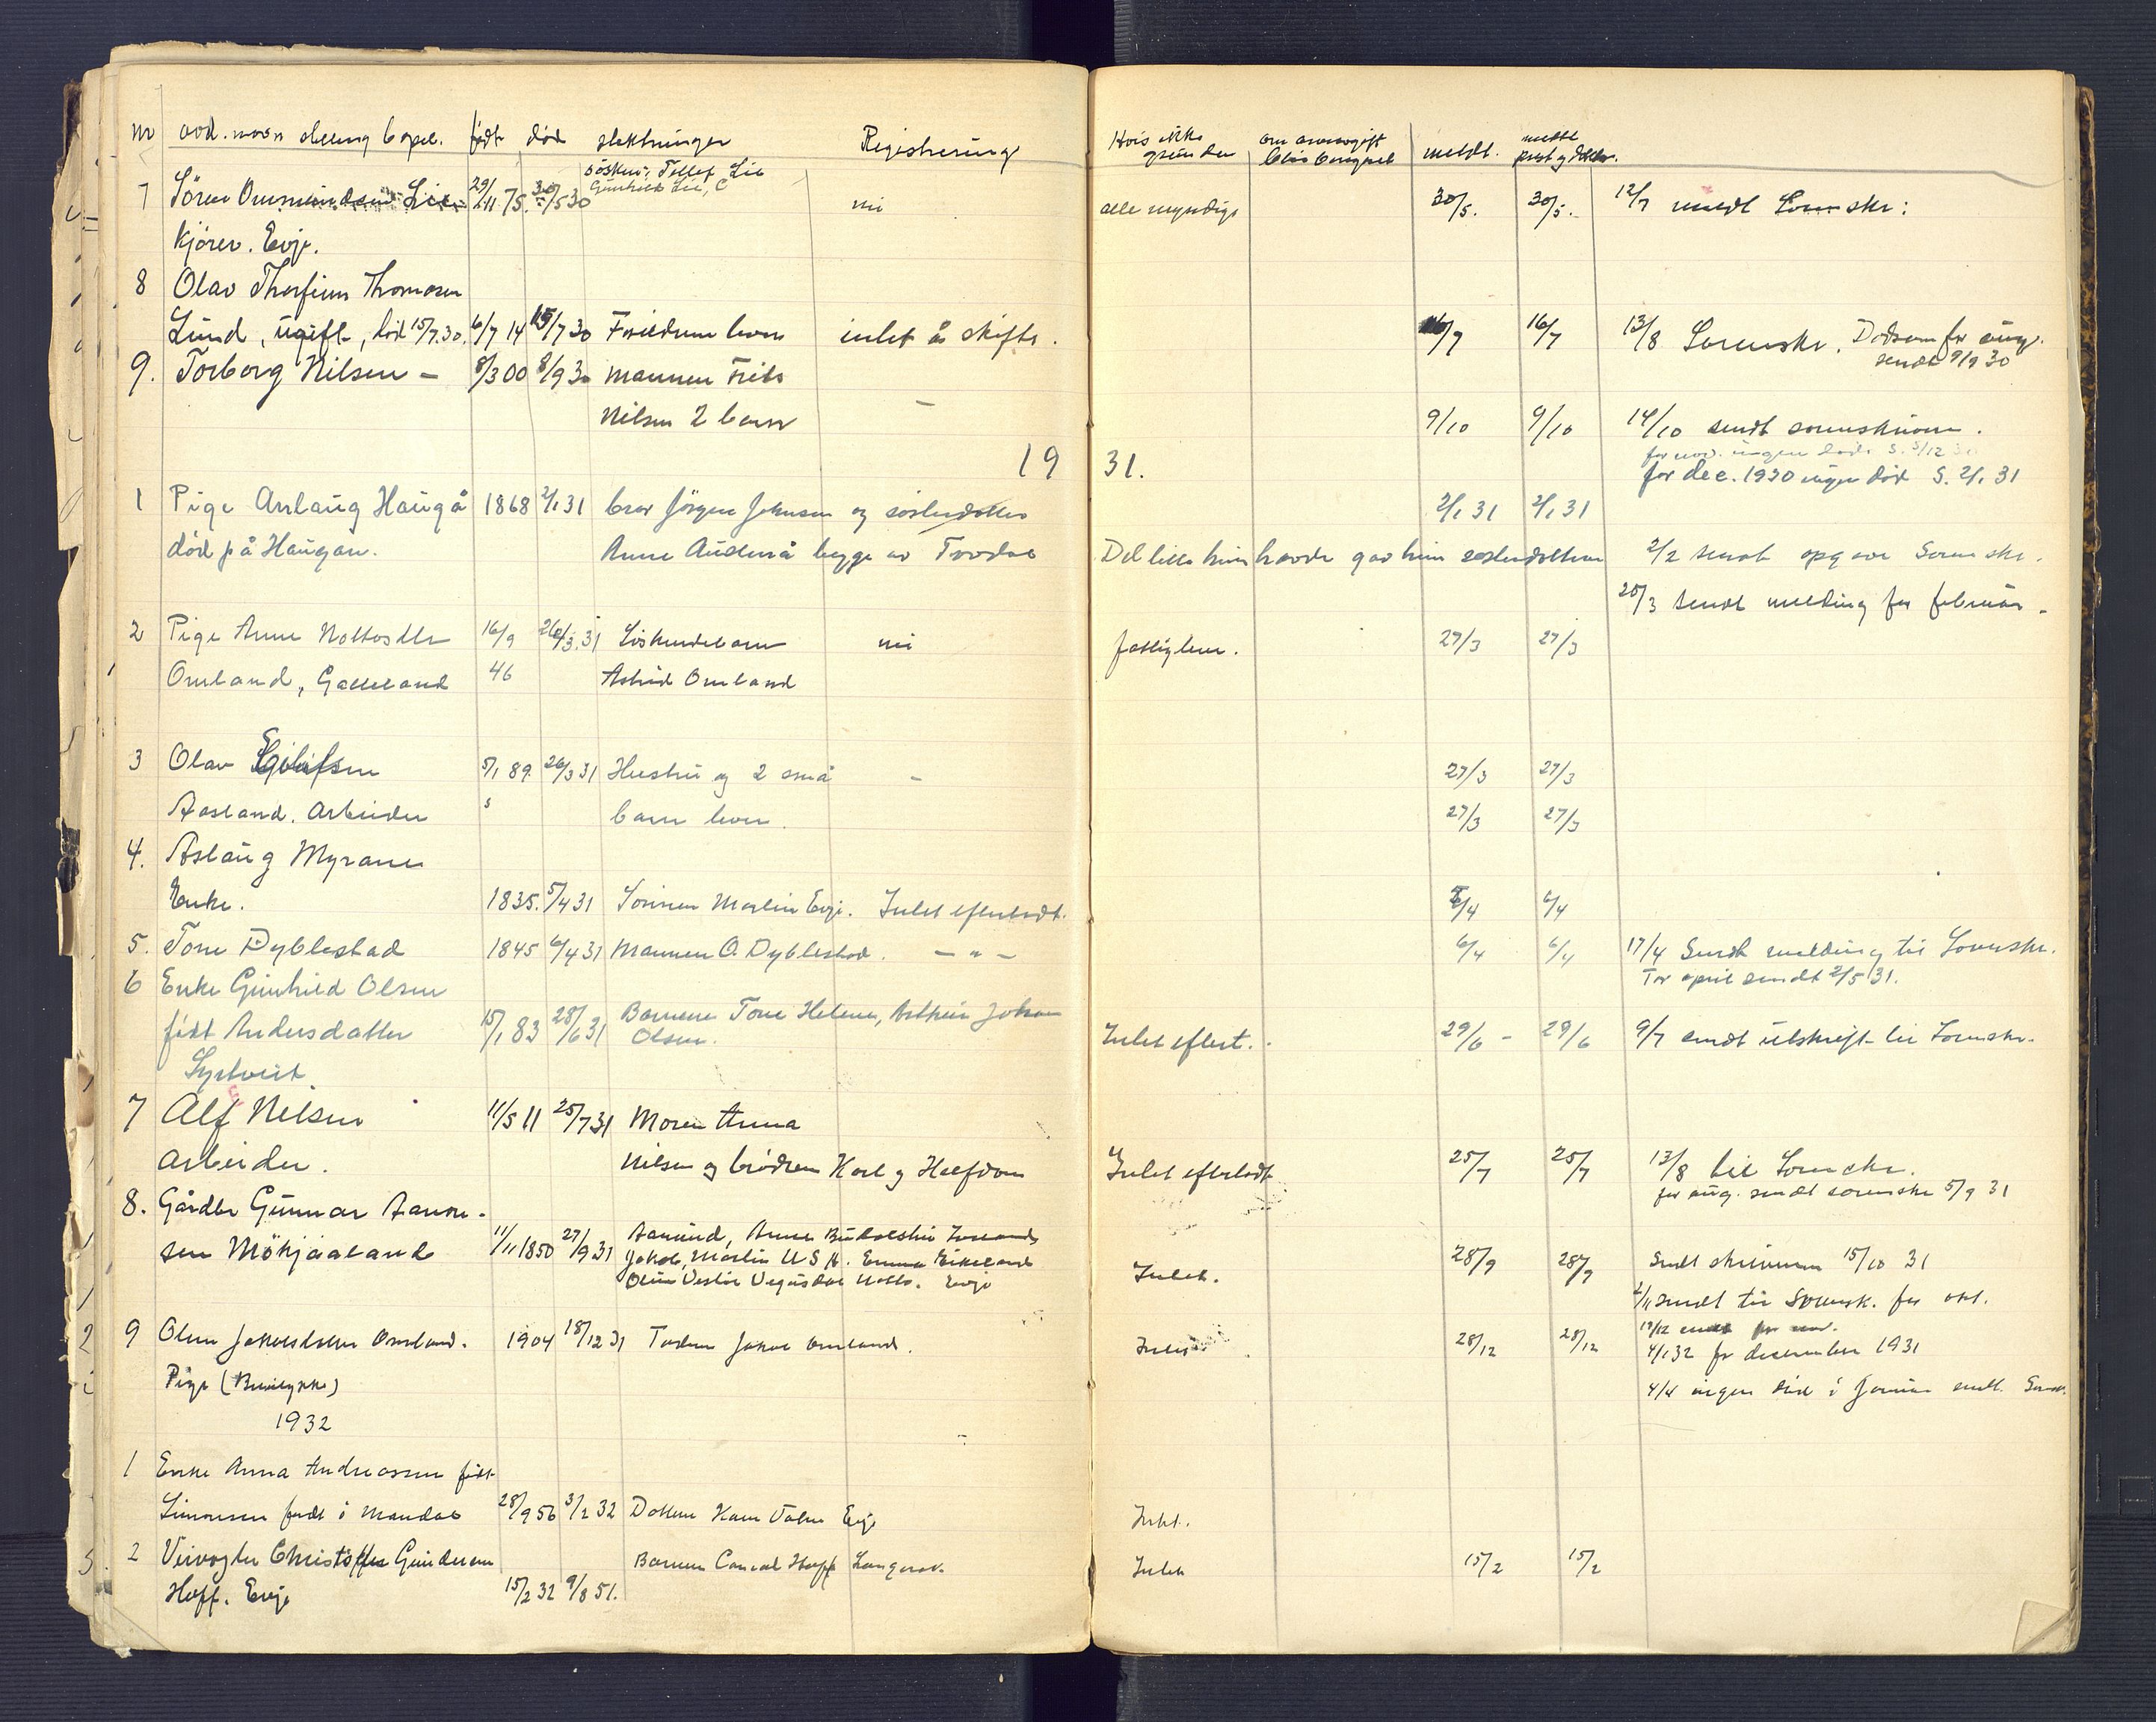 nr avd. navn stilling bopel. født død slektninger Registrering Hvis ikke grunden om arveavgift meldt. meldt
søsken: Tellef Lie
Gunhild Lie
7 Sören Omundsen Lie 29/11 75. 30/5 30 nei alle myndige 30/5. 30/5. 12/7 meldt Sorenskr:
Kjörer. Evje.
8 Olav Thorfinn Thomasen
Lund, ugift, död 15/7.30. 6/7 14 15/7 30 Foreldrene lever intet å skifte. 16/7 16/7 13/8 Sorenskr. Dödsan for aug.
sendt 9/9 30
9. Torborg Nilsen - 8/3 00 8/9 30 Mannen Frits
Nilsen 2 barn - 9/10 9/10 14/10 sendt sorenskriveren.
for nov. ingen döde S. 5/12 30
19 31. for dec. 1930 ingen död S. 2/1 31
1 Pige Anlaug Haugå 1868 2/1 31 bror Jörgen Johnsen og sösterdatter 2/1 31 2/1 31
död på Haugan. Anne Auderå begge av Tvedal Det lille hun havde gav hun sösterdatteren 2/2 sendt opgave Sorenskr.
25/3 sendt melding for februar.
2 Pige Anne Nottosdtr 16/9 26/3.31 Söskendebarn nei fattiglem. 27/3 27/3
Omland, Galteland 46 Astrid Omland
3 Olav Eilifsen 5/1 89. 26/3 31 Hustru og 2 små - 27/3 27/3
Aasland. Arbeider barn lever. 27/3 27/3
4. Aslaug Myrane
Enke. 1835. 5/4 31 Sönnen Martin Evje. Intet efterladt. 6/4 6/4
5. Tone Dyblestad 1845 6/4 31 Mannen O. Dyblestad. - " - 6/4 6/4 17/4 Sendt melding til Sorenskr.
For april sendt 2/5 31.
6 Enke Gunhild Olsen
födt Andersdatter 15/1 83 28/6 31 Barnene Tone Helene, Arthur Johan
Olsen. Intet eftert. 29/6 - 29/6 9/7 sendt utskrift til Sorenskr.
Syrtveit
7 Alf Nilsen 11/5 11 25/7 31 Moren Anna
arbeider. Nilsen og brödrene Karl og Halfdan Intet efterladt 25/7 25/7 13/8 til Sorenskr.
for aug. sendt sorenskr 5/9 31
8. Gårdbr Gunnar Aanon-
sen Mökjåaland 11/11 1850 27/9 31 Aanund, Anne
Jakob, Martin U S A. Emma Eikeland
Vegusdal Evje Intet. 28/9 28/9 Sendt skriveren 15/10 31
2/11 sendt til Sorensk. for okt.
9 Olene Jakobsdatter Omland. 1904 18/12 31 Faderen Jakob Omland. Intet 28/12 28/12 sendt for nov.
4/1 32 for desember 1931
Pige 4/4 ingen död i Januar sendt. Soren.
1932
1 Enke Anna Andreassen födt
Simonsen födt i Mandal 28/9 56 3/2 32 Datteren Evje Intet.
2 Veivogter Christoffer Gundersen Barnene Conrad Hoff Langesd. Intet 15/2 15/2
Hoff. Evje 15/2 32 9/8 51.